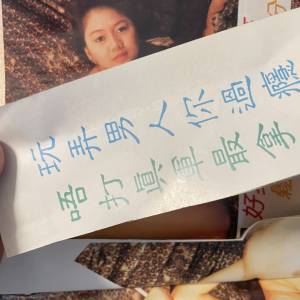 玩弄男人你過癮
唔打真軍最拿
好
好